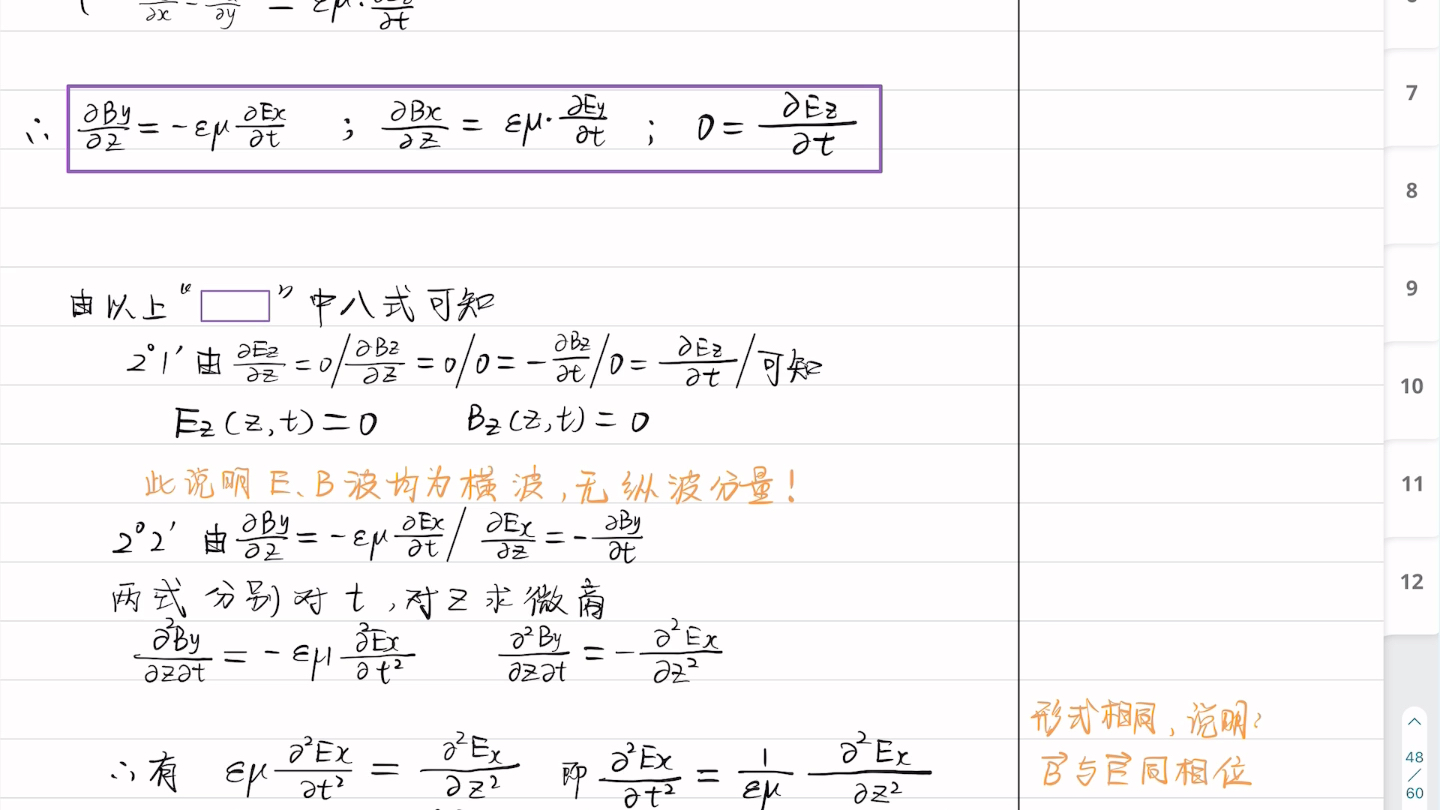 ∂x - ∂y = εμ· ∂t
∴ ∂By/∂z = -εμ ∂Ex/∂t ; ∂Bx/∂z = εμ· ∂Ey/∂t ; 0 = ∂Ez/∂t
由以上 "□" 中八式可知
2°1′ 由 ∂Ez/∂z = 0 / ∂Bz/∂z = 0 / 0 = -∂Bz/∂t / 0 = ∂Ez/∂t / 可知
Ez(z,t) = 0 Bz(z,t) = 0
此说明 E、B 波均为横波,无纵波分量!
2°2′ 由 ∂By/∂z = -εμ ∂Ex/∂t / ∂Ex/∂z = -∂By/∂t
两式分别对 t,对 z 求微商
∂²By/∂z∂t = -εμ ∂²Ex/∂t² ∂²By/∂z∂t = -∂²Ex/∂z²
∴有 εμ ∂²Ex/∂t² = ∂²Ex/∂z² 即 ∂²Ex/∂t² = 1/εμ ∂²Ex/∂z²
形式相同,说明:
B⃗与E⃗同相位
7
8
9
10
11
12
48
/
60